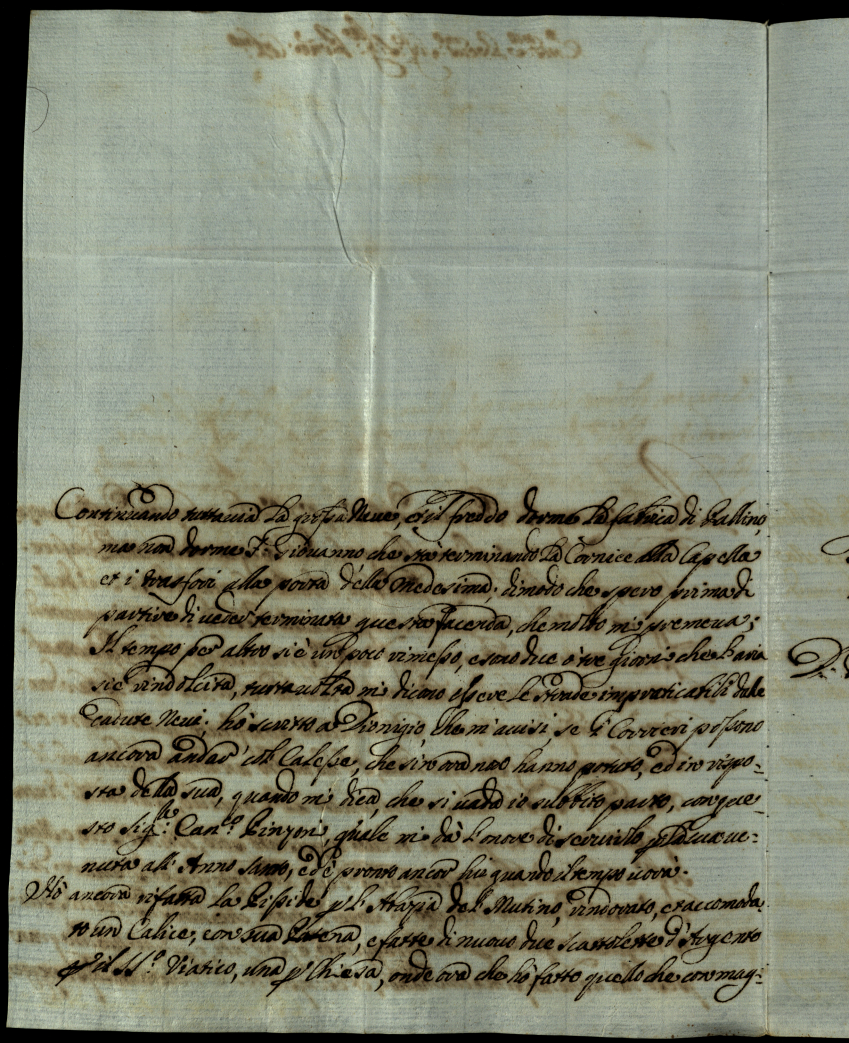 Continuando tuttavia la grossa Neve, et il freddo dorme la fabrica di Gallino,
ma non dorme Fr: Giovanno che stà terminando la Cornice alla Capella
et i trasfori alla porta della medesima, dimodo che spero prima di
partire di veder terminata questa facenda, che molto mi premeva;
Il tempo per altro si è un poco rimesso, e sono due ò tre giorni che l'aria
si è rindolcita, tutta volta mi dicono essere le strade impraticabili dalle
cadute Nevi; hò scritto a Dionigio, che m'avisi, se i Corrieri possono
ancora andar col Calesse, che sin ora non hanno potuto, ed in rispo-
sta della sua, quando mi dica, che si vada io subbito parto, con que-
sto Sig.r Can.co Pinzoni, quale mi dà l'onore di servirlo p la sua ve-
nuta all'Anno Santo, ed è pronto ancor lui quando il tempo
Hò ancora rifatta la Pisside p l'Abazia del Mutino, rindorato, et accomoda-
to un Calice, con sua Patena, e fatte di nuovo due scattolette d'Argento
p il SS.o Viatico, una p Chiesa, onde ora che hò fatto quello che con mag-